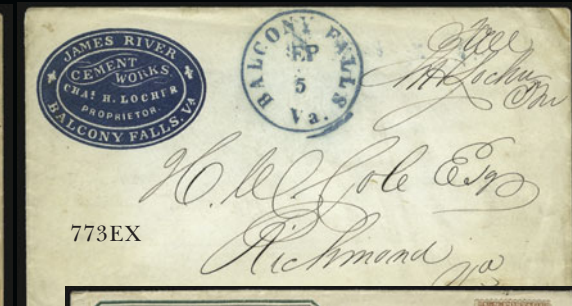 JAMES RIVER
CEMENT
WORKS,
CHAS H. LOCHER
PROPRIETOR.
BALCONY FALLS, VA
BALCONY FALLS
SEP
5
Va.
Free
H. W. Cole Esqr
Richmond
Va
773EX